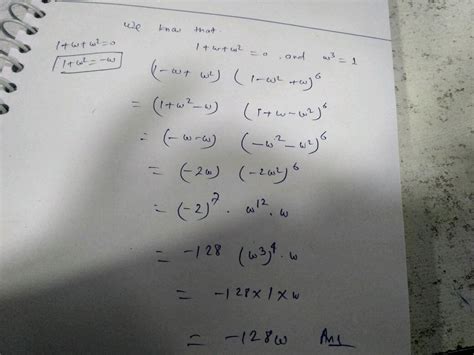 We know that
1+ω+ω²=0
1+ω+ω²=0 and ω³=1
1+ω²=-ω
(1-ω+ω²) (1-ω²+ω)⁶
= (1+ω²-ω) (1+ω-ω²)⁶
= (-ω-ω) (-ω²-ω²)⁶
= (-2ω) (-2ω²)⁶
= (-2)⁷ · ω¹² · ω
= -128 (ω³)⁴ · ω
= -128×1×ω
= -128ω Ans